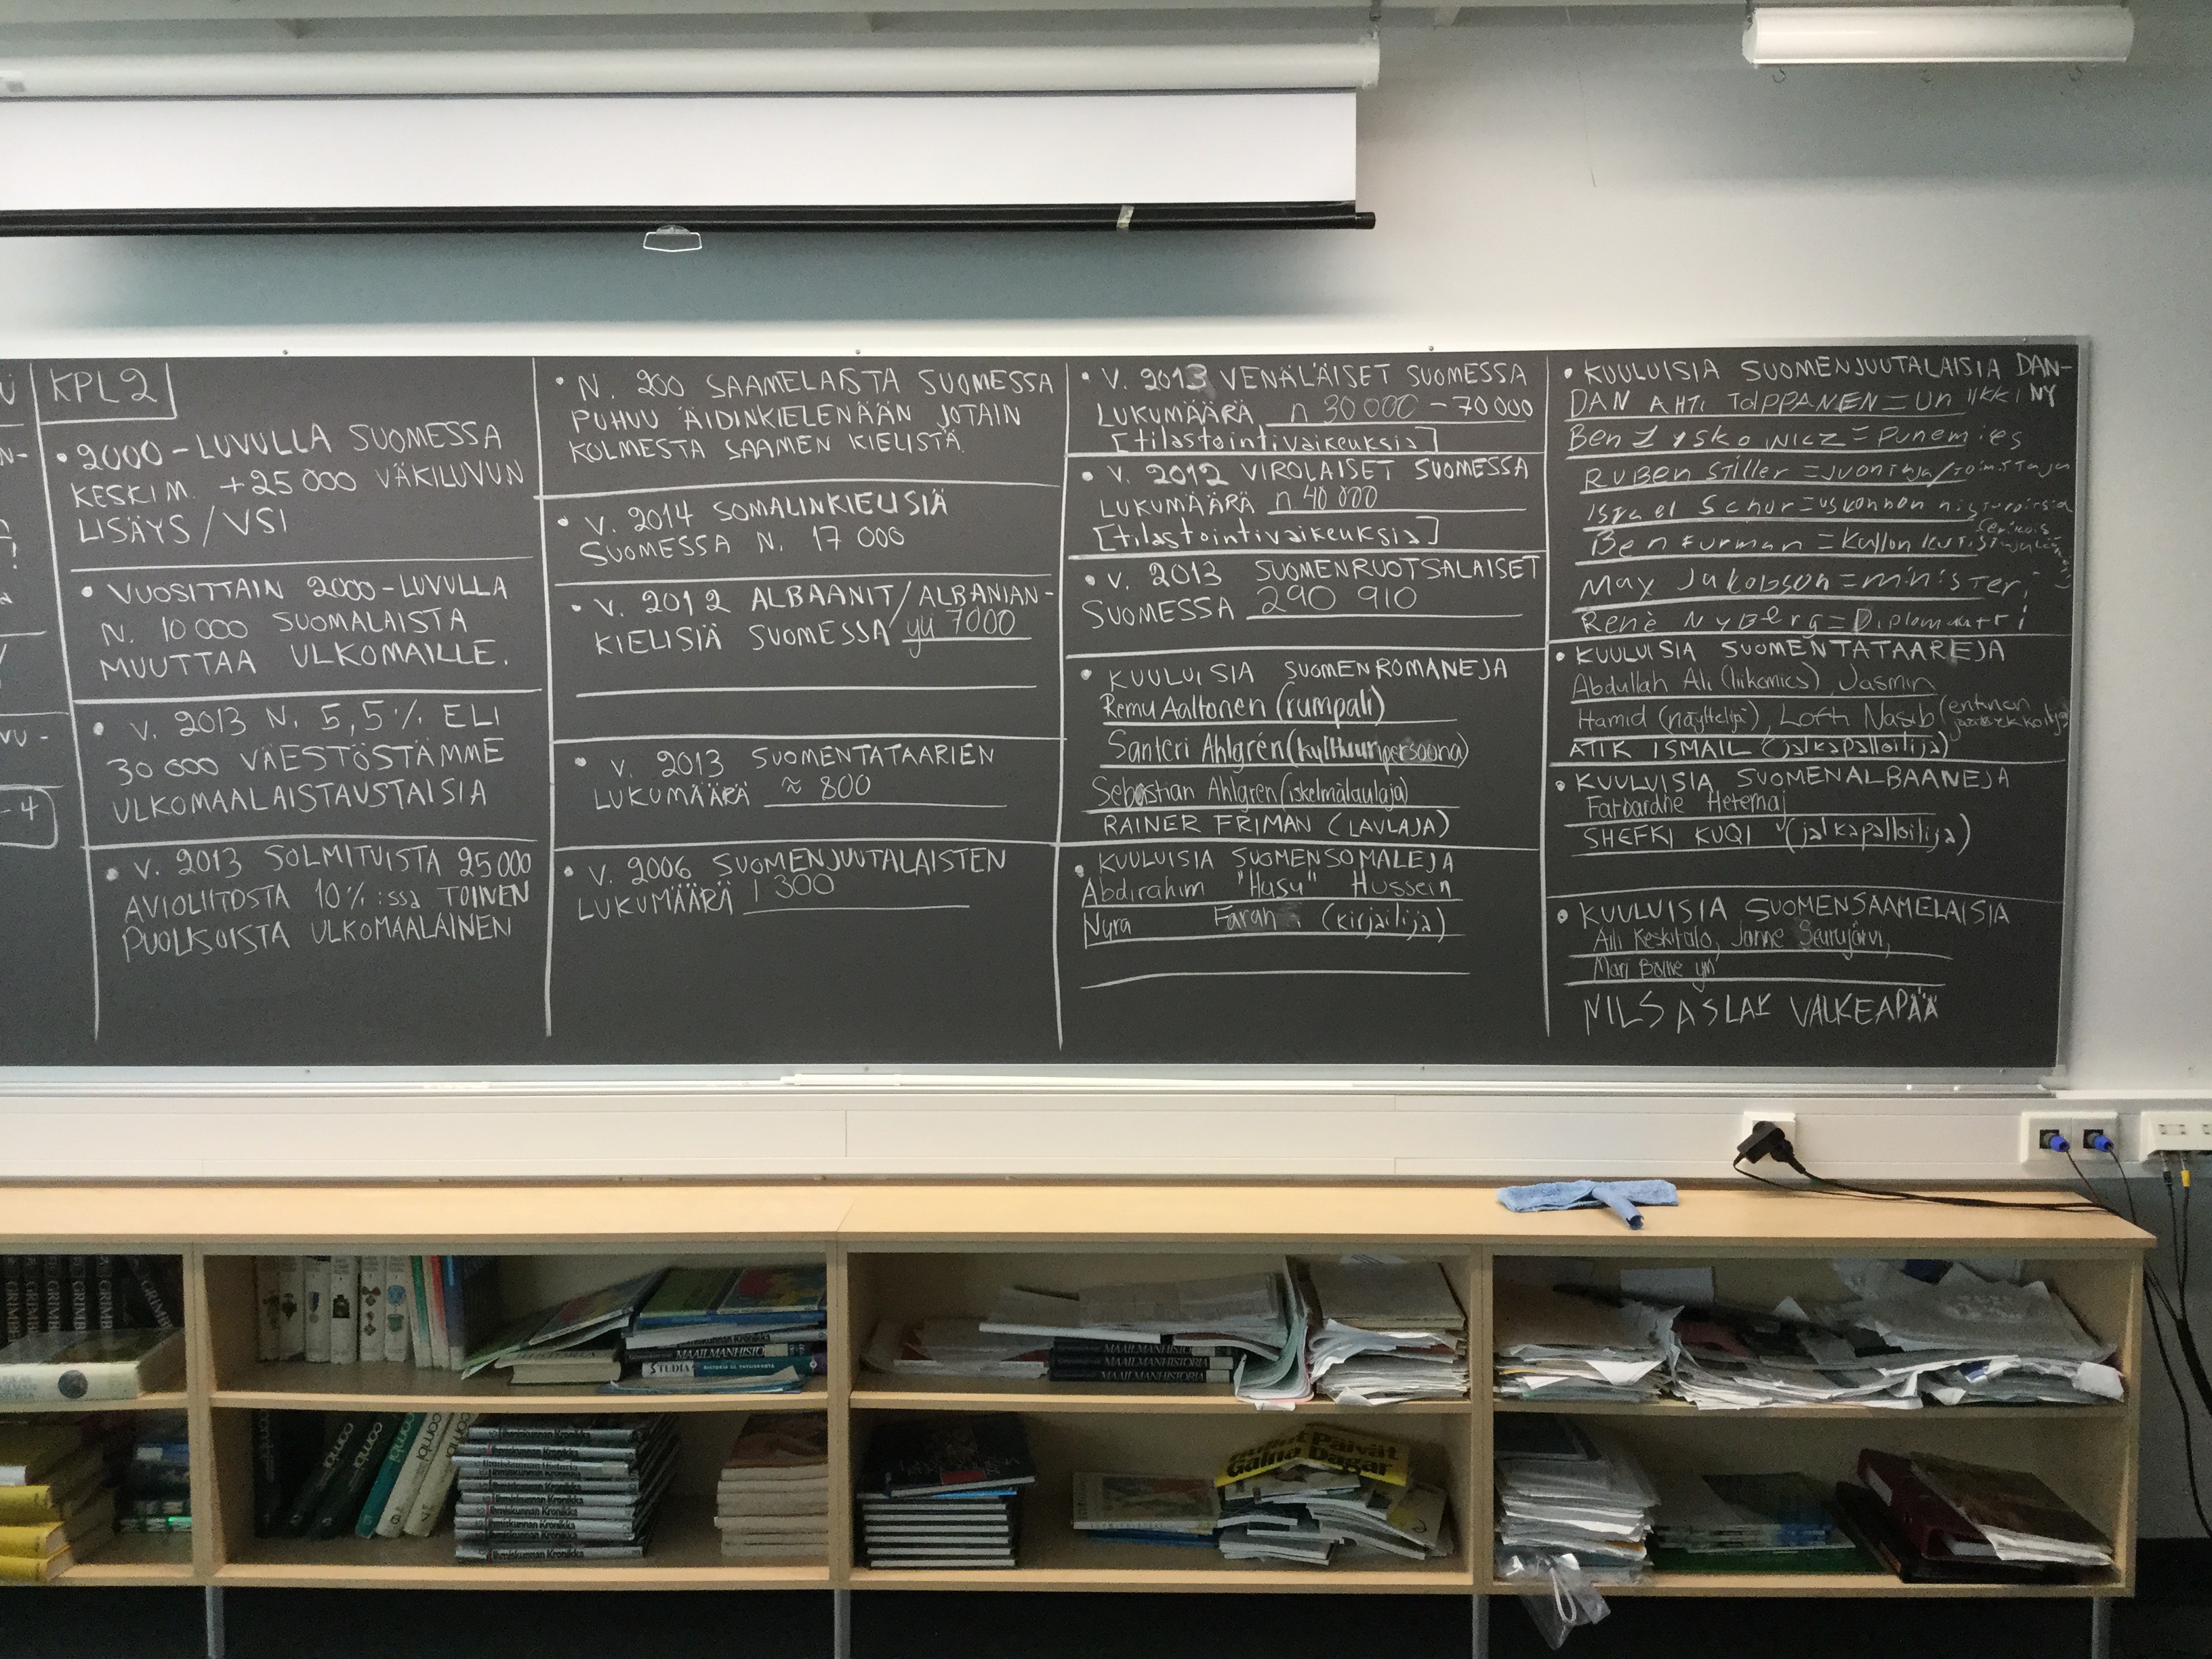 KPL 2
• 2000-LUVULLA SUOMESSA
KESKIM. +25 000 VÄKILUVUN
LISÄYS / VSI
• VUOSITTAIN 2000-LUVULLA
N. 10 000 SUOMALAISTA
MUUTTAA ULKOMAILLE.
• V. 2013 N. 5,5% ELI
30 000 VÄESTÖSTÄMME
ULKOMAALAISTAUSTAISIA
• V. 2013 SOLMITUISTA 25 000
AVIOLIITOSTA 10%:ssa TOINEN
PUOLISOISTA ULKOMAALAINEN
• N. 200 SAAMELAISTA SUOMESSA
PUHUU ÄIDINKIELENÄÄN JOTAIN
KOLMESTA SAAMEN KIELISTÄ.
• V. 2014 SOMALINKIELISIÄ
SUOMESSA N. 17 000
• V. 2012 ALBAANIT / ALBANIAN-
KIELISIÄ SUOMESSA yli 7000
• V. 2013 SUOMENTATAARIEN
LUKUMÄÄRÄ ≈ 800
• V. 2006 SUOMENJUUTALAISTEN
LUKUMÄÄRÄ 1 300
• V. 2013 VENÄLÄISET SUOMESSA
LUKUMÄÄRÄ n 30 000 - 70 000
[tilastointivaikeuksia]
• V. 2012 VIROLAISET SUOMESSA
LUKUMÄÄRÄ n. 40 000
[tilastointivaikeuksia]
• V. 2013 SUOMENRUOTSALAISET
SUOMESSA 290 910
• KUULUISIA SUOMENROMANEJA
Remu Aaltonen (rumpali)
Santeri Ahlgrén (kulttuuripersoona)
Sebastian Ahlgren (iskelmälaulaja)
RAINER FRIMAN (LAULAJA)
• KUULUISIA SUOMENSOMALEJA
Abdirahim "Husu" Hussein
Nura Farah (kirjailija)
• KUULUISIA SUOMENJUUTALAISIA DAN-
DAN AHTI TOLPPANEN = Uniikki NY
Ben Zyskowicz = Punemies
RUBEN Stiller = Juontaja/toimittaja
Israel Schur = uskonnon
Ben Furman = Kallon kutistaja
Max Jakobson = ministeri
Renè NyBerg = Diplomaatti
• KUULUISIA SUOMENTATAAREJA
Abdullah Ali (liikemies), Jasmin
Hamid (näyttelijä), Lotfi Nasib (entinen
jääkiekkoilija)
ATIK ISMAIL (jalkapalloilija)
• KUULUISIA SUOMENALBAANEJA
Farbardhe Hetemaj
SHEFKI KUQI (jalkapalloilija)
• KUULUISIA SUOMENSAAMELAISIA
Aili Keskitalo, Janne Seurujärvi,
Mari Boine ym
NILS ASLAK VALKEAPÄÄ
GRIMBERG
MAAILMANHISTORIA
STUDIA
HISTORIA JA YHTEISKUNTA
MAAILMANHISTORIA
MAAILMANHISTORIA
MAAILMANHISTORIA
combi
combi
combi
Ihmiskunnan Kronikka
Ihmiskunnan Kronikka
Ihmiskunnan Kronikka
Ihmiskunnan Kronikka
Päivät
Galna Dagar